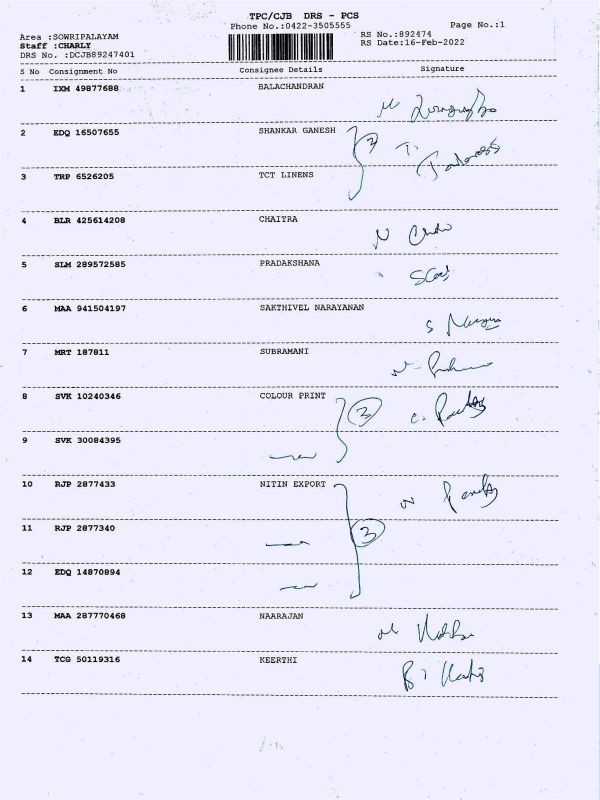 TPC/CJB DRS - PCS
Phone No.:0422-3505555
Page No.:1
Area :SOWRIPALAYAM
Staff :CHARLY
DRS No. :DCJB89247401
RS No.:892474
RS Date:16-Feb-2022
S No Consignment No Consignee Details Signature
1 IXM 49877688 BALACHANDRAN
2 EDQ 16507655 SHANKAR GANESH
3 TRP 6526205 TCT LINENS
4 BLR 425614208 CHAITRA
5 SLM 289572585 PRADAKSHANA
6 MAA 941504197 SAKTHIVEL NARAYANAN
7 MRT 187811 SUBRAMANI
8 SVK 10240346 COLOUR PRINT
9 SVK 30084395
10 RJP 2877433 NITIN EXPORT
11 RJP 2877340 3
12 EDQ 14870894
13 MAA 287770468 NAARAJAN
14 TCG 50119316 KEERTHI